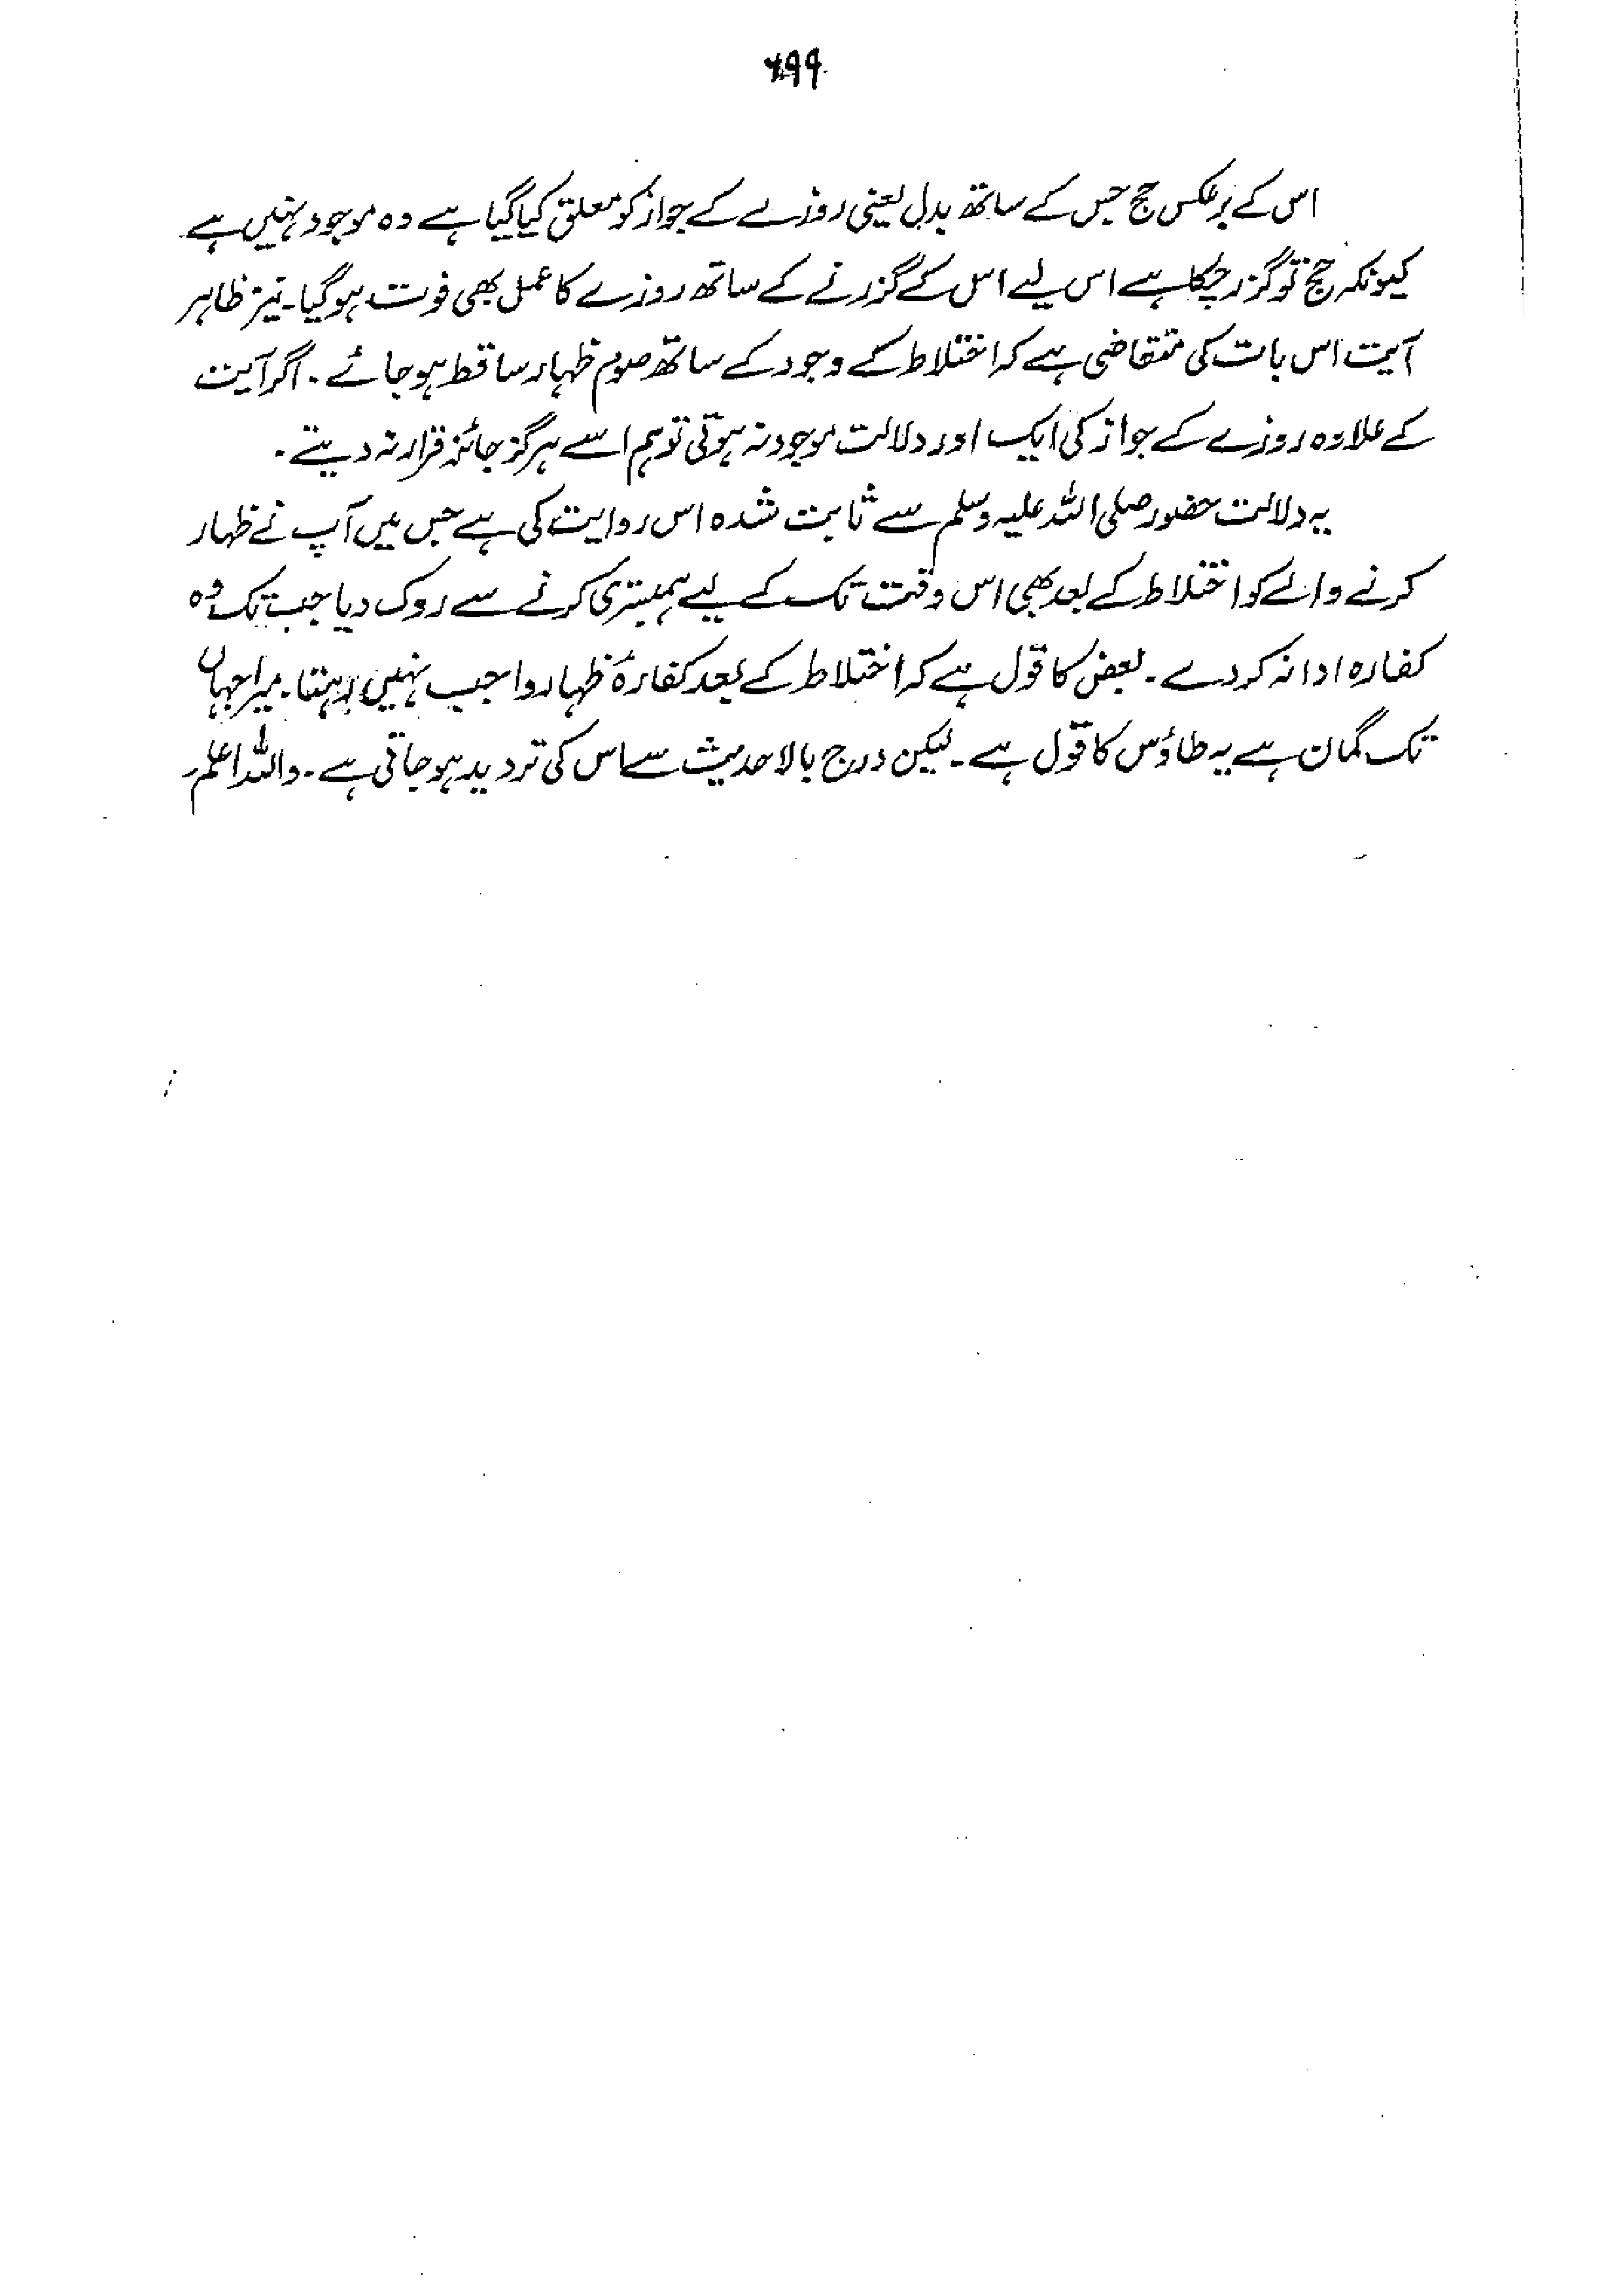 ۶۹۹
اس کے برعکس حج جس کے ساتھ بدل یعنی روزے کے جواز کو معلق کیا گیا ہے وہ موجود نہیں ہے
کیونکہ حج تو گزر چکا ہے اس لیے اس کے گزرنے کے ساتھ روزے کا عمل بھی فوت ہو گیا۔ نیز ظاہر
آیت اس بات کی متقاضی ہے کہ اختلاط کے وجود کے ساتھ صوم ظہار ساقط ہو جائے۔ اگر آیت
کے علاوہ روزے کے جواز کی ایک اور دلالت موجود نہ ہوتی تو ہم اسے ہرگز جائز قرار نہ دیتے۔
یہ دلالت حضور صلی اللہ علیہ وسلم سے ثابت شدہ اس روایت کی ہے جس میں آپ نے ظہار
کرنے والے کو اختلاط کے بعد بھی اس وقت تک کے لیے ہمبستری کرنے سے روک دیا جب تک وہ
کفارہ ادا نہ کر دے۔ بعض کا قول ہے کہ اختلاط کے بعد کفارۂ ظہار واجب نہیں رہتا۔ میرا جہاں
تک گمان ہے یہ طاؤس کا قول ہے۔ لیکن درج بالا حدیث سے اس کی تردید ہو جاتی ہے۔ واللہ اعلم۔